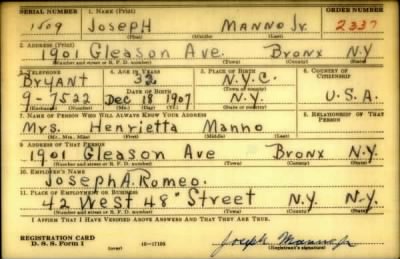 SERIAL NUMBER 1. NAME (Print) ORDER NUMBER
1509 JOSEPH MANNO JR. 2337
(First) (Middle) (Last)
2. ADDRESS (Print)
1901 Gleason Ave. Bronx N.Y
(Number and street or R. F. D. number) (Town) (County) (State)
3. TELEPHONE 4. AGE IN YEARS 5. PLACE OF BIRTH 6. COUNTRY OF CITIZENSHIP
BRYANT 32 N.Y.C.
DATE OF BIRTH (Town or county)
9-7522 Dec 18 1907 N.Y. U.S.A.
(Exchange) (Number) (Mo.) (Day) (Yr.) (State or country)
7. NAME OF PERSON WHO WILL ALWAYS KNOW YOUR ADDRESS 8. RELATIONSHIP OF THAT PERSON
Mrs. Henrietta Manno
(Mr., Mrs., Miss) (First) (Middle) (Last)
9. ADDRESS OF THAT PERSON
1901 Gleason Ave Bronx N.Y.
(Number and street or R. F. D. number) (Town) (County) (State)
10. EMPLOYER'S NAME
JOSEPH A. ROMEO.
11. PLACE OF EMPLOYMENT OR BUSINESS
42 West 48" Street N.Y. N.Y.
(Number and street or R. F. D. number) (Town) (County) (State)
I AFFIRM THAT I HAVE VERIFIED ABOVE ANSWERS AND THAT THEY ARE TRUE.
REGISTRATION CARD
D. S. S. Form 1 (over) 16-17105 Joseph Manno Jr
(Registrant's signature)